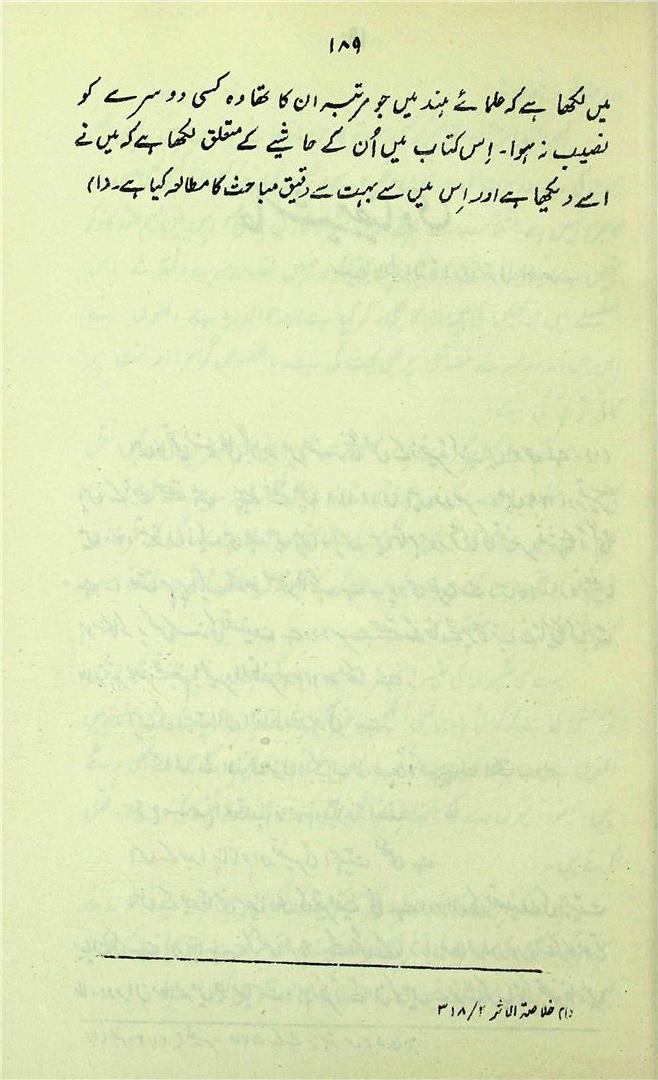 ۱۸۹
میں لکھا ہے کہ علمائے ہند میں جو مرتبہ ان کا تھا وہ کسی دوسرے کو
نصیب نہ ہوا۔ اِس کتاب میں اُن کے حاشیے کے متعلق لکھا ہے کہ میں نے
اسے دیکھا ہے اور اِس میں سے بہت سے دقیق مباحث کا مطالعہ کیا ہے۔ (۱)
(۱) خلاصۃ الاثر ۲/ ۳۱۸